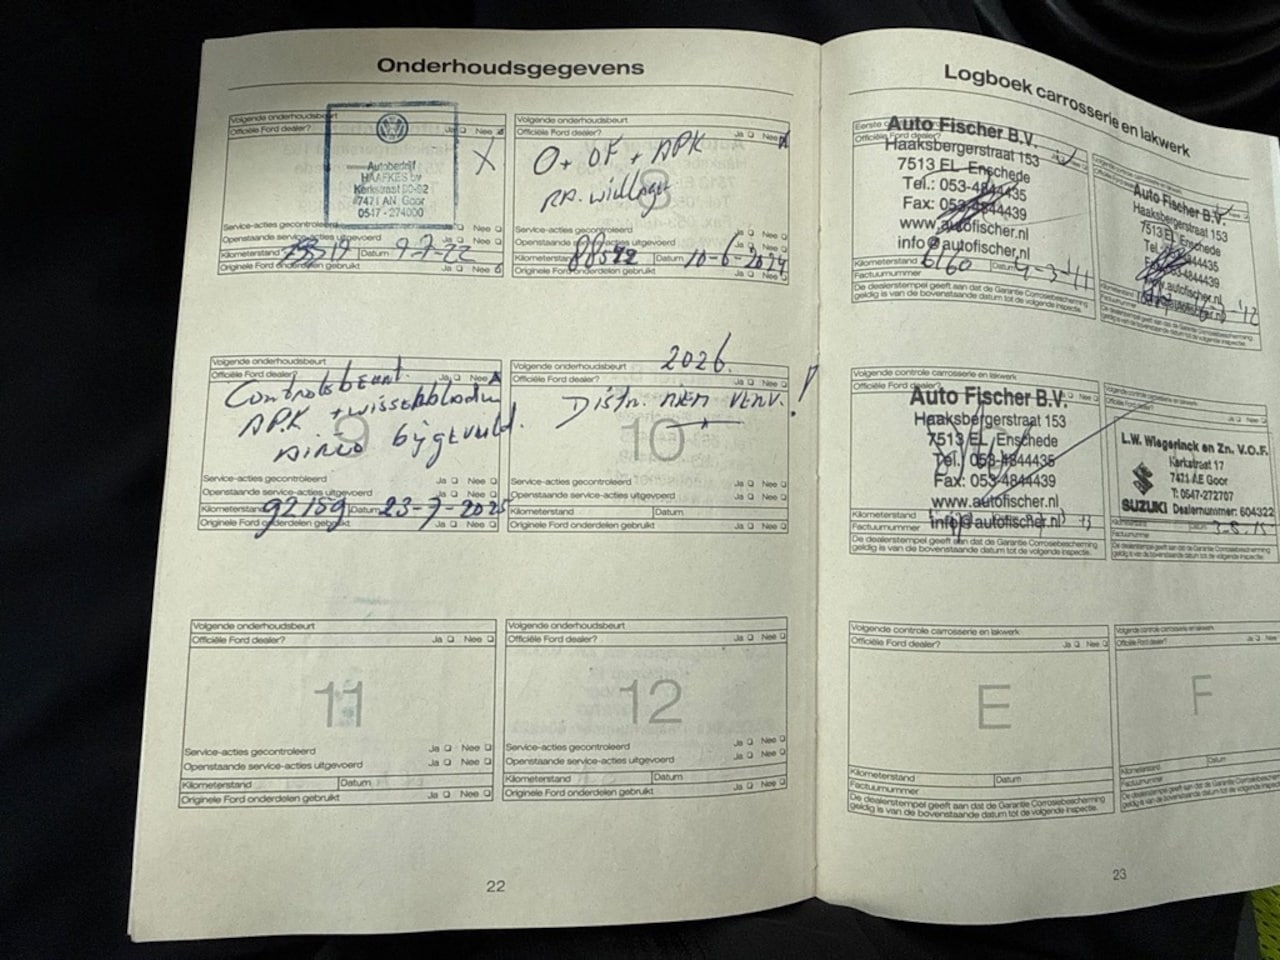 Onderhoudsgegevens
Volgende onderhoudsbeurt
Officiële Ford dealer? Ja Nee
Autobedrijf
HAAFKES bv
Kerkstraat 80-82
7471 AN Goor
0547 - 274000
X
Service-acties gecontroleerd Ja Nee
Openstaande service-acties uitgevoerd Ja Nee
Kilometerstand Datum 9-7-22
Originele Ford onderdelen gebruikt Ja Nee
Volgende onderhoudsbeurt
Officiële Ford dealer? Ja Nee
O + OF + APK
8
Service-acties gecontroleerd Ja Nee
Openstaande service-acties uitgevoerd Ja Nee
Kilometerstand 88592 Datum 10-6-2024
Originele Ford onderdelen gebruikt Ja Nee
Volgende onderhoudsbeurt
Officiële Ford dealer? Ja Nee
Controlebeurt.
APK + wisserbladen
9
bijgevuld.
Service-acties gecontroleerd Ja Nee
Openstaande service-acties uitgevoerd Ja Nee
Kilometerstand 92159 Datum 23-7-2025
Originele Ford onderdelen gebruikt Ja Nee
2026.
Volgende onderhoudsbeurt
Officiële Ford dealer? Ja Nee
Distr. riem verv. !
10
Service-acties gecontroleerd Ja Nee
Openstaande service-acties uitgevoerd Ja Nee
Kilometerstand Datum
Originele Ford onderdelen gebruikt Ja Nee
Volgende onderhoudsbeurt
Officiële Ford dealer? Ja Nee
11
Service-acties gecontroleerd Ja Nee
Openstaande service-acties uitgevoerd Ja Nee
Kilometerstand Datum
Originele Ford onderdelen gebruikt Ja Nee
Volgende onderhoudsbeurt
Officiële Ford dealer? Ja Nee
12
Service-acties gecontroleerd Ja Nee
Openstaande service-acties uitgevoerd Ja Nee
Kilometerstand Datum
Originele Ford onderdelen gebruikt Ja Nee
22
Logboek carrosserie en lakwerk
Auto Fischer B.V.
Haaksbergerstraat 153
7513 EL Enschede
Tel.: 053-4844435
Fax: 053-4844439
www.autofischer.nl
info@autofischer.nl
Kilometerstand 6160 Datum 4-3-'11
Factuurnummer
De dealerstempel geeft aan dat de Garantie Corrosiebescherming
geldig is van de bovenstaande datum tot de volgende inspectie.
Auto Fischer B.V.
Haaksbergerstraat 153
7513 EL Enschede
Tel. 053-4844435
Fax: 053-4844439
www.autofischer.nl
info@autofischer.nl
De dealerstempel geeft aan dat de Garantie Corrosiebescherming
geldig is van de bovenstaande datum tot de volgende inspectie.
Volgende controle carrosserie en lakwerk
Officiële Ford dealer? Ja Nee
Auto Fischer B.V.
Haaksbergerstraat 153
7513 EL Enschede
Tel.: 053-4844435
Fax: 053-4844439
www.autofischer.nl
info@autofischer.nl
Kilometerstand
Factuurnummer
De dealerstempel geeft aan dat de Garantie Corrosiebescherming
geldig is van de bovenstaande datum tot de volgende inspectie.
Volgende controle carrosserie en lakwerk
Officiële Ford dealer? Ja Nee
L.W. Wiegerinck en Zn. V.O.F.
Kerkstraat 17
7471 AE Goor
T: 0547-272707
SUZUKI Dealernummer: 604322
Kilometerstand Datum
Factuurnummer
De dealerstempel geeft aan dat de Garantie Corrosiebescherming
geldig is van de bovenstaande datum tot de volgende inspectie.
Volgende controle carrosserie en lakwerk
Officiële Ford dealer? Ja Nee
E
Kilometerstand Datum
Factuurnummer
De dealerstempel geeft aan dat de Garantie Corrosiebescherming
geldig is van de bovenstaande datum tot de volgende inspectie.
Volgende controle carrosserie en lakwerk
Officiële Ford dealer? Ja Nee
F
Kilometerstand Datum
Factuurnummer
De dealerstempel geeft aan dat de Garantie Corrosiebescherming
geldig is van de bovenstaande datum tot de volgende inspectie.
23